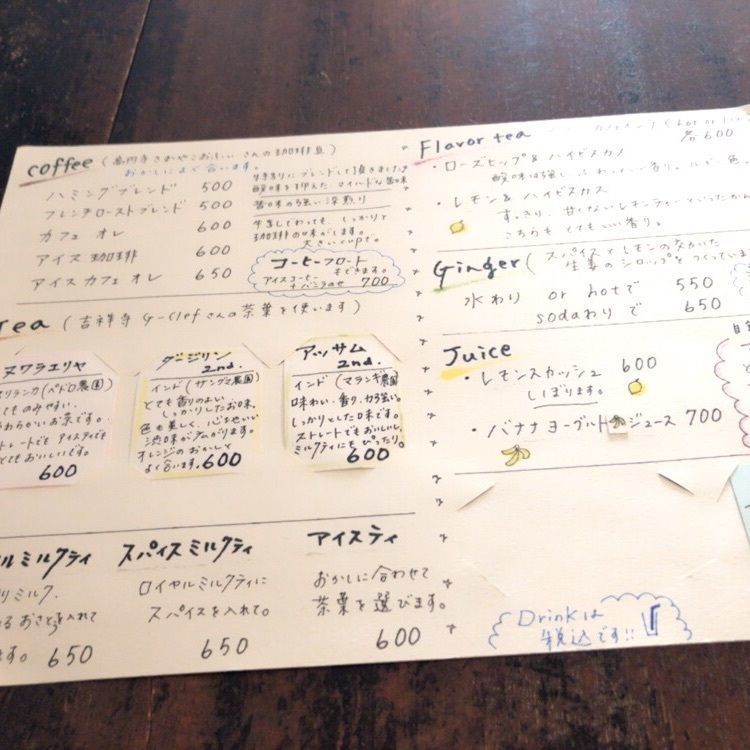 coffee (高円寺さわやこおふぃさんの珈琲豆)
おかしによく合います。
ハミングブレンド 500
フレンチローストブレンド 500
カフェ オレ 600
アイス珈琲 600
アイスカフェオレ 650
ブレンドして頂きました
酸味を抑えたマイルドな苦味
苦味の強い深煎り
牛乳でわっても、しっかりと
珈琲の味がします。
大きいcupで。
コーヒーフロート
もできます。
アイスコーヒー
+バニラのせ 700
Tea (吉祥寺 G-Clefさんの茶葉を使います)
ヌワラエリヤ
スリランカ(ペドロ農園)
とてものみやすい、
やわらかいお茶です。
ストレートでもアイスティでも
とてもおいしいです。
600
ダージリン
2nd.
インド(サングマ農園)
とても香りのよい
しっかりしたお味。
色も美しく、心地いい
渋味が広がります。
オレンジのおかしと
よく合います。600
アッサム
2nd.
インド(マランギ農園)
味わい、香り、力強い。
しっかりとした味です。
ストレートでもおいしいし、
ミルクティにもぴったり。
600
ルミルクティ
ミルク、
おさとうを入れて
ます。650
スパイスミルクティ
ロイヤルミルクティに
スパイスを入れて。
650
アイスティ
おかしに合わせて
茶葉を選びます。
600
Flavor tea
各600
・ローズヒップ&ハイビスカス
・レモン&ハイビスカス
すっきり、甘くないレモンティーといったかんじ
こちらもとてもいい香り。
Ginger (スパイスとレモンの交かいた
生姜のシロップをつくっていま
水わり or hotで 550
sodaわりで 650
Juice
・レモンスカッシュ 600
しぼります。
・バナナヨーグルトジュース 700
Drinkは
税込です!!